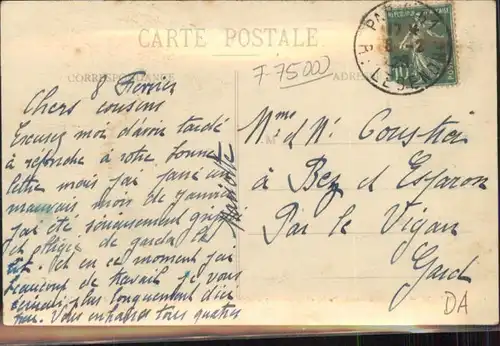 CARTE POSTALE
CORRESPONDANCE
F 75000
8 Fevrier
Chers cousins
Excusez moi d'avoir tardé
à repondre à votre bonne
lettre mais j'ai passé un
mauvais mois de janvier
j'ai été serieusement grippé
et obligé de garder le
lit. Et en ce moment j'ai
beaucoup de travail je vous
ecrirai plus longuement d'ici
peu. Vous embrasse tous quatre
Mme et Mr Coustier
à Bez et Esparon
Par le Vigan
Gard
DA
10